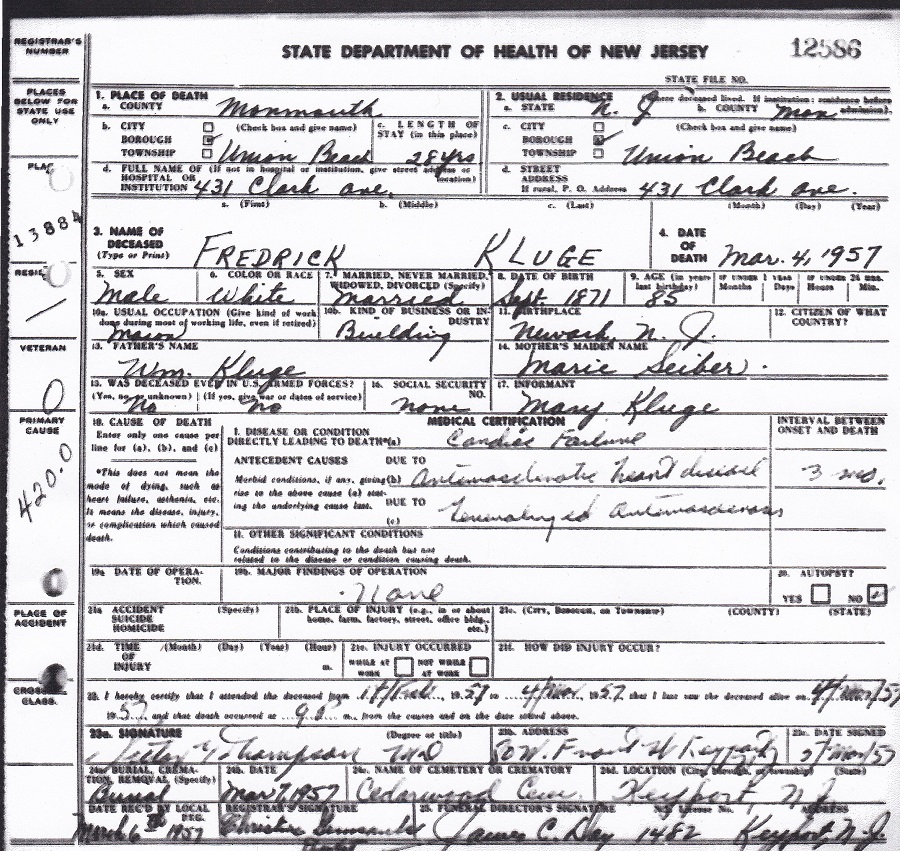 STATE DEPARTMENT OF HEALTH OF NEW JERSEY
12586
STATE FILE NO.
REGISTRAR'S NUMBER
PLACES BELOW FOR STATE USE ONLY
PLAC
13884
RESID
VETERAN
0
PRIMARY CAUSE
420.0
PLACE OF ACCIDENT
CROSS CLASS.
1. PLACE OF DEATH
a. COUNTY Monmouth
b. CITY (Check box and give name)
BOROUGH
TOWNSHIP Union Beach
c. LENGTH OF STAY (in this place) 28 yrs
d. FULL NAME OF (If not in hospital or institution, give street address or location)
HOSPITAL OR INSTITUTION 431 Clark Ave.
2. USUAL RESIDENCE (Where deceased lived. If institution: residence before admission).
a. STATE N. J b. COUNTY Mon
c. CITY (Check box and give name)
BOROUGH
TOWNSHIP Union Beach
d. STREET ADDRESS
If rural, P. O. Address 431 Clark Ave.
3. NAME OF DECEASED (Type or Print)
a. (First) b. (Middle) c. (Last)
FREDRICK KLUGE
4. DATE OF DEATH (Month) (Day) (Year)
Mar. 4, 1957
5. SEX
Male
6. COLOR OR RACE
White
7. MARRIED, NEVER MARRIED, WIDOWED, DIVORCED (Specify)
Married
8. DATE OF BIRTH
Sept. 1871
9. AGE (in years last birthday)
85
IF UNDER 1 YEAR Months Days
IF UNDER 24 HRS. Hours Min.
10a. USUAL OCCUPATION (Give kind of work done during most of working life, even if retired)
Mason
10b. KIND OF BUSINESS OR INDUSTRY
Building
11. BIRTHPLACE
Newark, N. J.
12. CITIZEN OF WHAT COUNTRY?
13. FATHER'S NAME
Wm. Kluge
14. MOTHER'S MAIDEN NAME
Marie Seiber.
15. WAS DECEASED EVER IN U.S. ARMED FORCES?
(Yes, no, or unknown) (If yes, give war or dates of service)
No No
16. SOCIAL SECURITY NO.
none
17. INFORMANT
Mary Kluge
18. CAUSE OF DEATH
Enter only one cause per line for (a), (b), and (c)
*This does not mean the mode of dying, such as heart failure, asthenia, etc. It means the disease, injury, or complication which caused death.
MEDICAL CERTIFICATION
INTERVAL BETWEEN ONSET AND DEATH
I. DISEASE OR CONDITION DIRECTLY LEADING TO DEATH*(a) Cardiac Failure
ANTECEDENT CAUSES
Morbid conditions, if any, giving rise to the above cause (a) stating the underlying cause last.
DUE TO (b) Arteriosclerotic heart disease 3 mo.
DUE TO (c) Generalized Arteriosclerosis
II. OTHER SIGNIFICANT CONDITIONS
Conditions contributing to the death but not related to the disease or condition causing death.
19a. DATE OF OPERATION.
19b. MAJOR FINDINGS OF OPERATION
None
20. AUTOPSY?
YES NO
21a. ACCIDENT SUICIDE HOMICIDE (Specify)
21b. PLACE OF INJURY (e.g., in or about home, farm, factory, street, office bldg., etc.)
21c. (City, Borough, or Township) (COUNTY) (STATE)
21d. TIME OF INJURY (Month) (Day) (Year) (Hour) m.
21e. INJURY OCCURRED
WHILE AT WORK NOT WHILE AT WORK
21f. HOW DID INJURY OCCUR?
22. I hereby certify that I attended the deceased from 1957 to 4/Mar, 1957, that I last saw the deceased alive on 4/Mar/57
1957, and that death occurred at m., from the causes and on the date stated above.
23a. SIGNATURE (Degree or title)
Thompson MD
23b. ADDRESS
80 W. Front St Keyport
23c. DATE SIGNED
5/Mar/57
24a. BURIAL, CREMATION, REMOVAL (Specify)
Burial
24b. DATE
Mar 7, 1957
24c. NAME OF CEMETERY OR CREMATORY
Cedarwood Cem.
24d. LOCATION (City, borough, or township) (State)
Keyport, N. J.
DATE REC'D BY LOCAL REG.
March 6th 1957
REGISTRAR'S SIGNATURE
Christine
25. FUNERAL DIRECTOR'S SIGNATURE N.J. License No. ADDRESS
James C. Day 1482 Keyport, N. J.